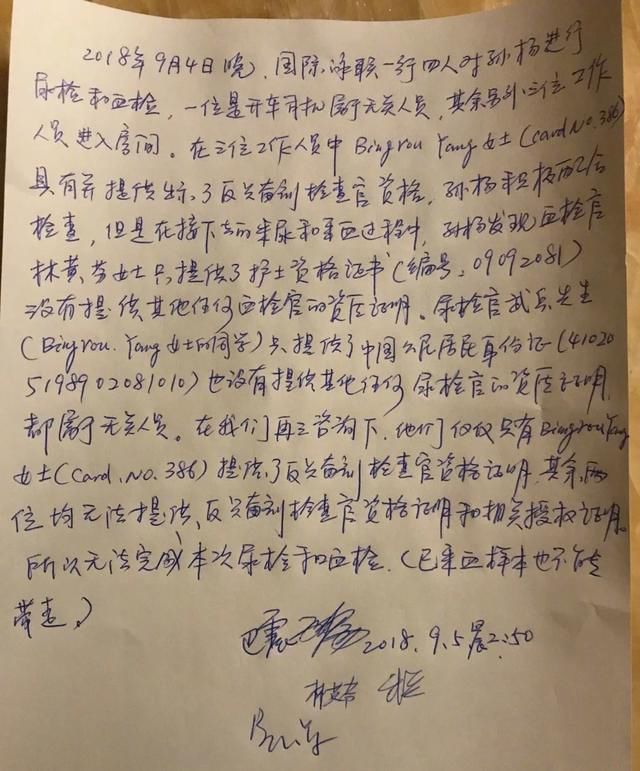 2018年9月4日晚，国际泳联一行四人对孙杨进行
尿检和血检，一位是开车司机属于无关人员，其余另外三位工作
人员进入房间。在三位工作人员中Bingrou Yang女士(card No.386)
具有并提供出示了反兴奋剂检查官资格，孙杨积极配合
检查，但是在接下去的采尿和采血过程中，孙杨发现血检官
林黄芬女士只提供了护士资格证书(编号:09092081)
没有提供其他任何血检官的资质证明。尿检官武兵先生
(Bingrou.Yang女士的同学)只提供了中国公民居民身份证(41020
5198902081010)也没有提供其他任何尿检官的资质证明
都属于无关人员。在我们再三咨询下，他们仅仅只有Bingrou Yang
女士(Card.No.386)提供了反兴奋剂检查官资格证明，其余两
位均无法提供反兴奋剂检查官资格证明和相关授权证明。
所以无法完成本次尿检和血检.(已采血样本也不能
带走。)
2018.9.5晨2:50